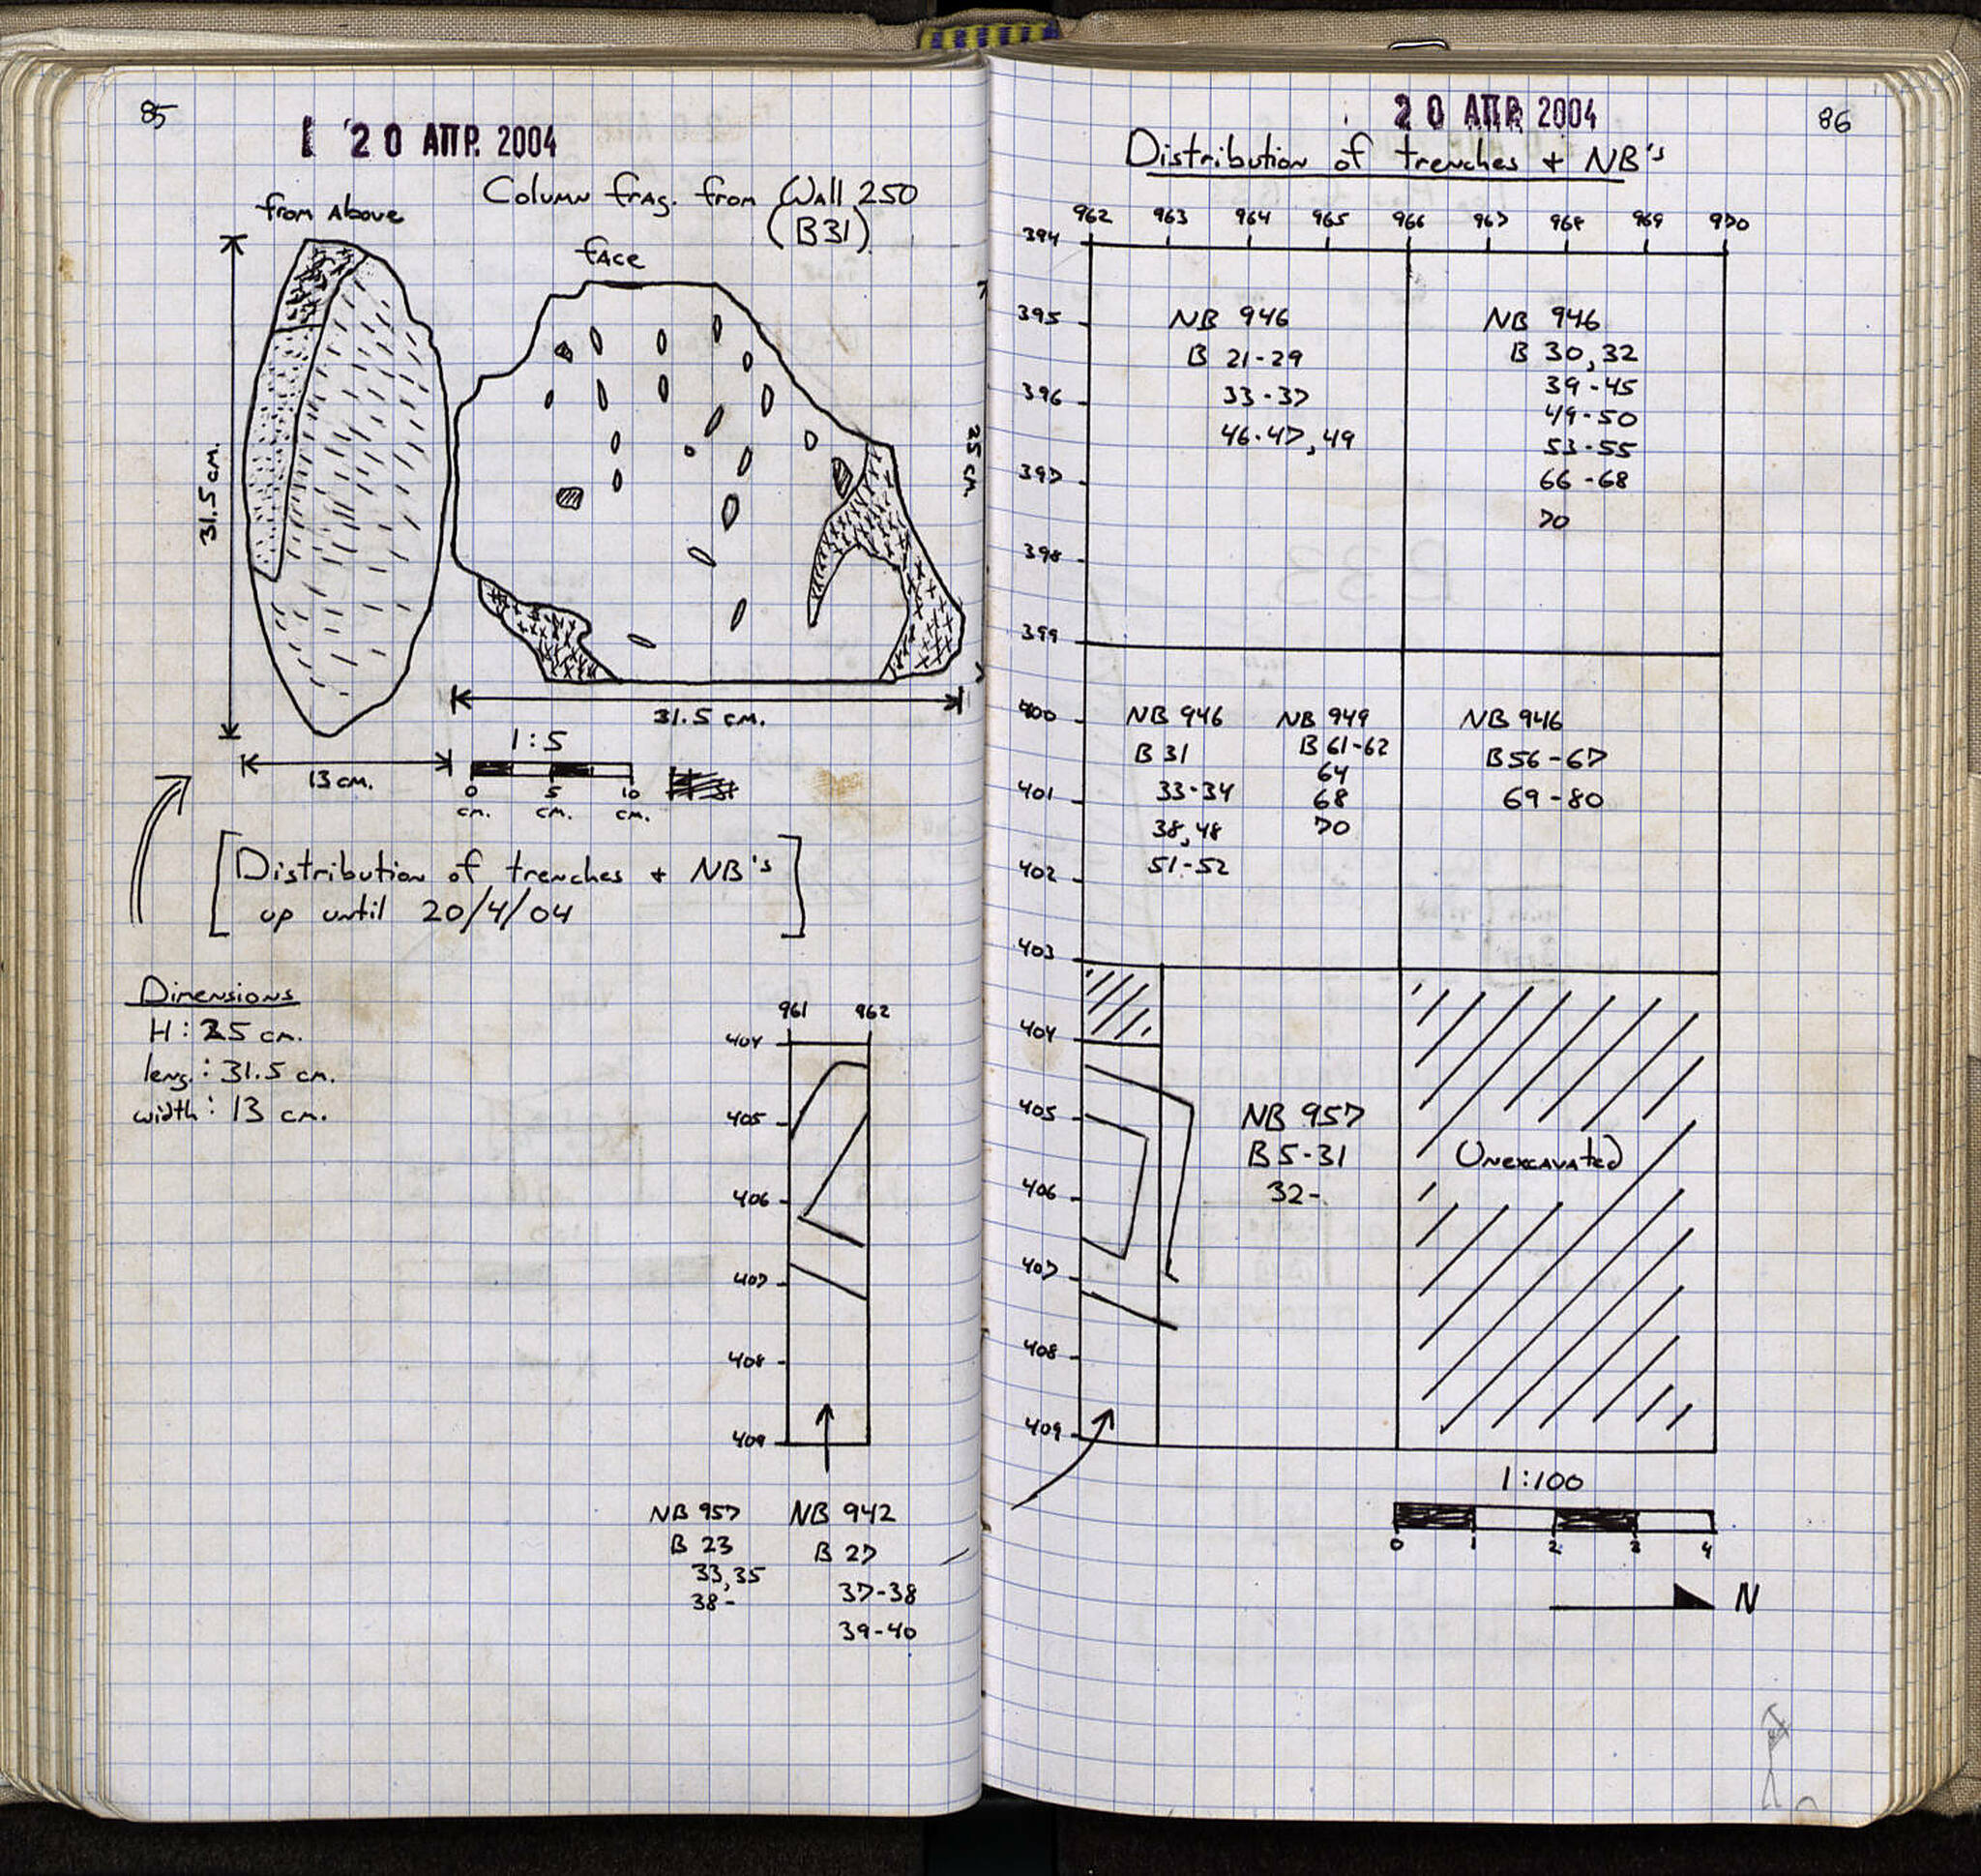 85
20 ΑΠΡ. 2004
from Above
Column frag. from Wall 250
(B31)
face
31.5 cm.
25 cm.
31.5 cm.
13 cm.
1:5
0 5 10
cm. cm. cm.
[Distribution of trenches + NB's
up until 20/4/04]
Dimensions
H: 25 cm.
leng.: 31.5 cm.
width: 13 cm.
961 962
404
405
406
407
408
409
NB 957
B 23
33,35
38-
NB 942
B 27
37-38
39-40
20 ΑΠΡ. 2004
86
Distribution of trenches + NB's
962 963 964 965 966 967 968 969 970
394
395
396
397
398
399
400
401
402
403
404
405
406
407
408
409
NB 946
B 21-29
33-37
46-47, 49
NB 946
B 30, 32
39-45
49-50
53-55
66-68
70
NB 946
B 31
33-34
38, 48
51-52
NB 949
B 61-62
64
68
70
NB 946
B56-67
69-80
NB 957
B5-31
32-
Unexcavated
1:100
0 1 2 3 4
N